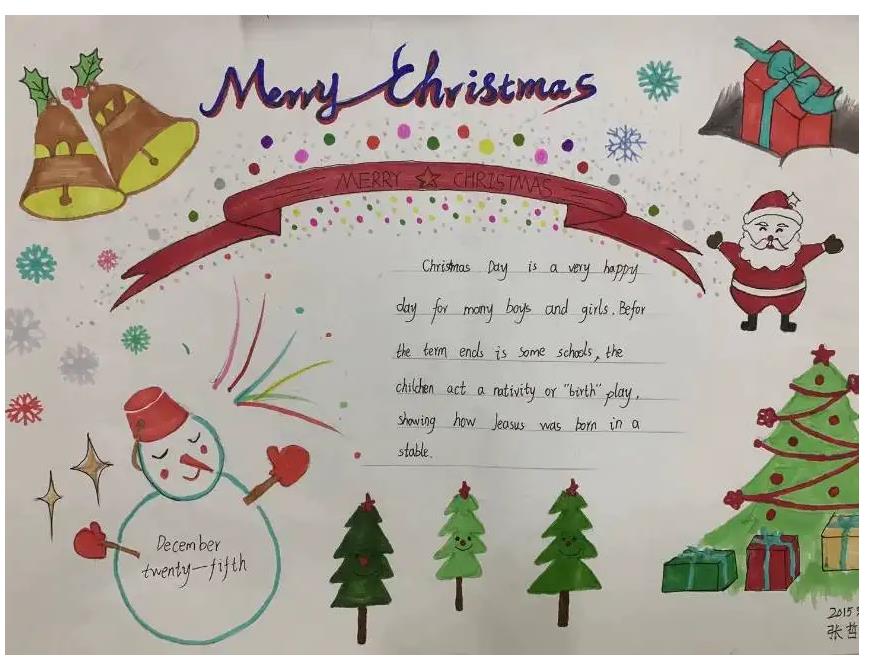 Merry Christmas
MERRY CHRISTMAS
Christmas Day is a very happy
day for many boys and girls. Befor
the term ends is some schools, the
children act a nativity or "birth" play,
showing how Jeasus was born in a
stable.
December
twenty-fifth
2015
张哲